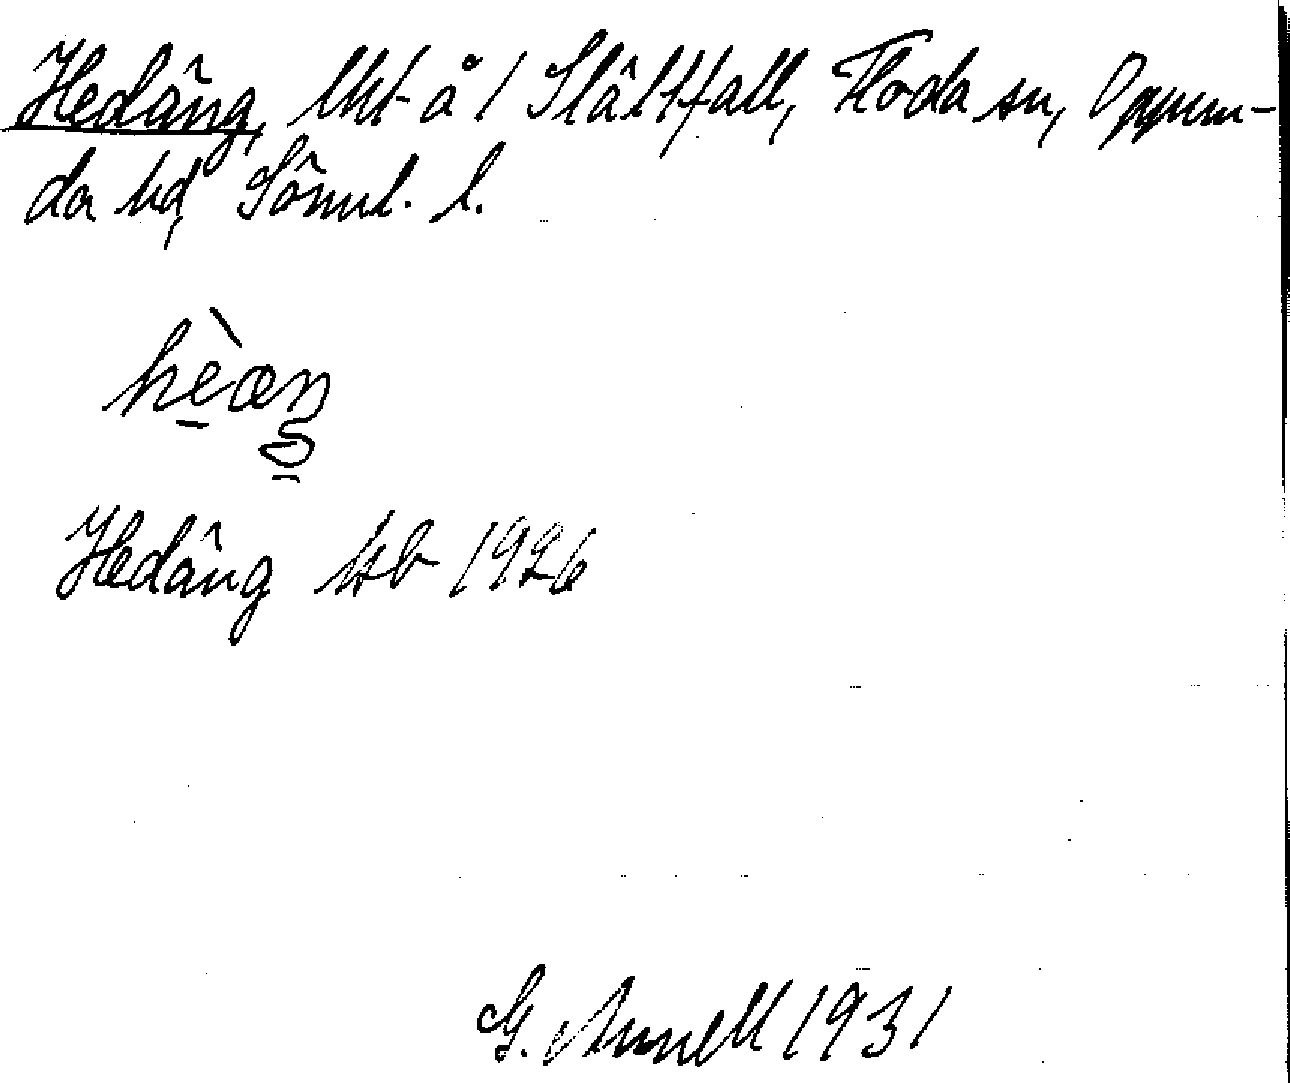 Hedäng, lht å 1 Slättfall, Floda sn, Oppun-
da hd, Söml. l.
hèæŋ
Hedäng kb 1926
G. Annell 1931